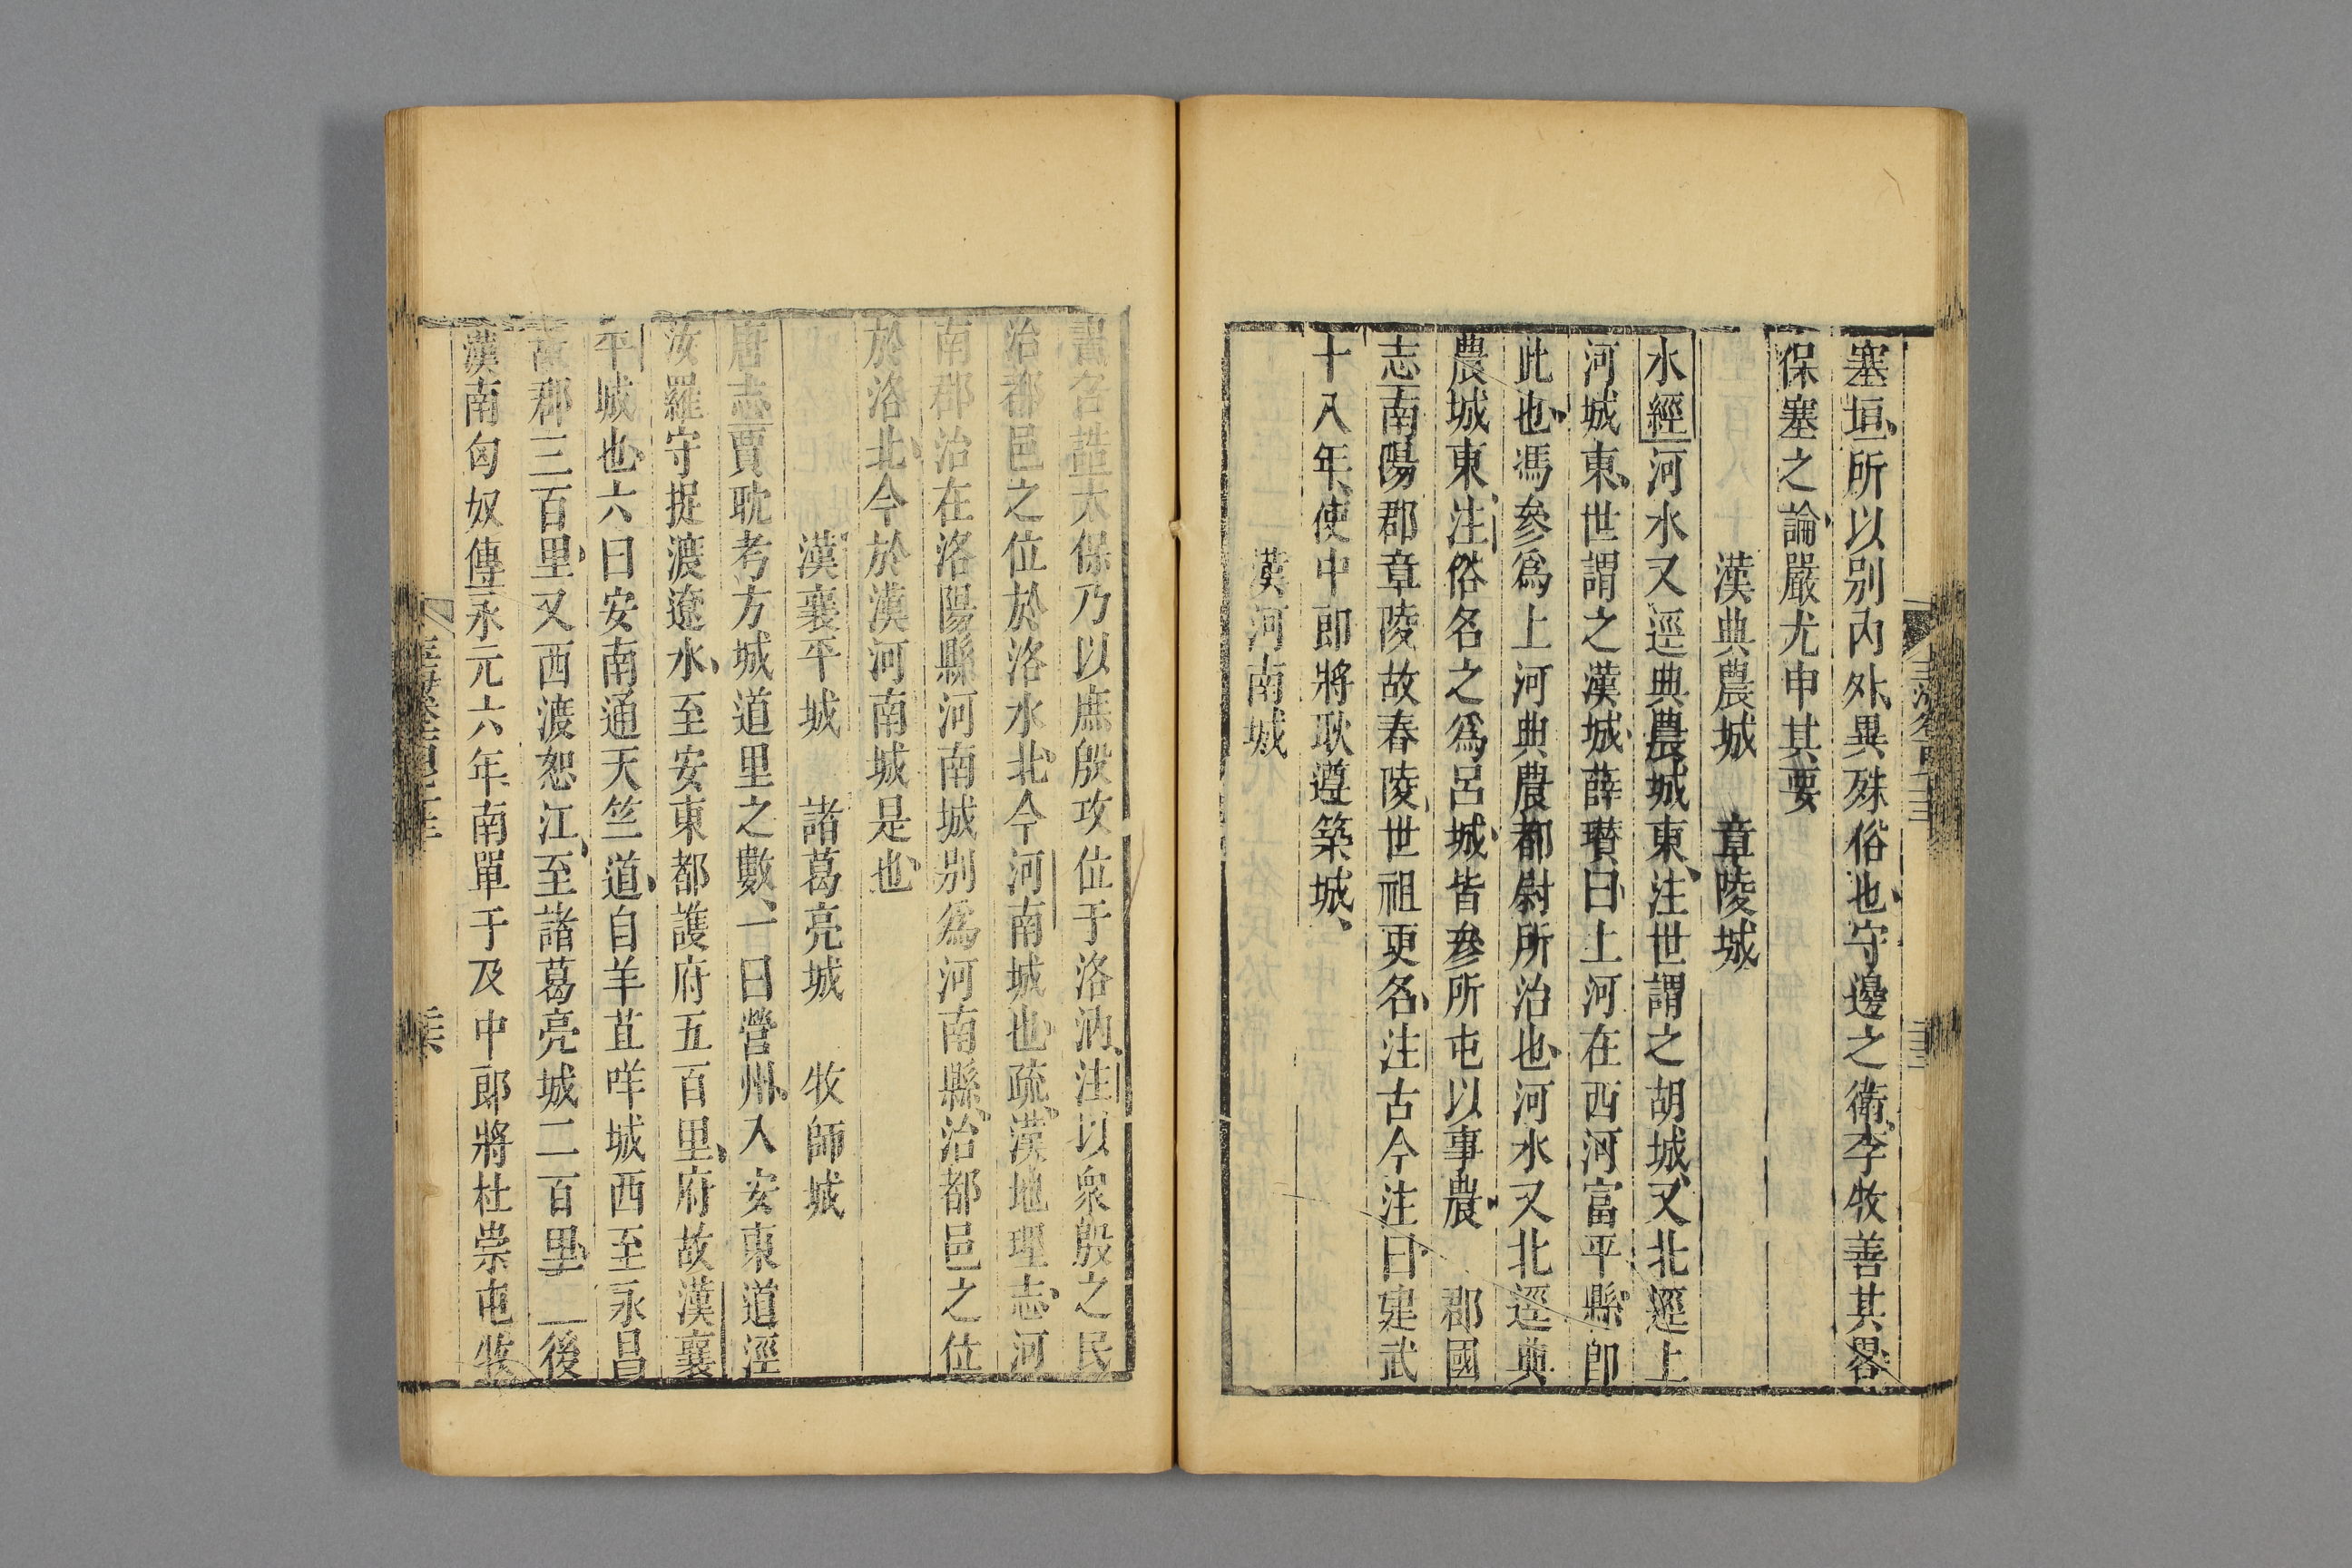 塞垣所以別內外異殊俗也守邊之衛李牧善其畧
保塞之論嚴尤申其要
漢典農城　章陵城
水經河水又逕典農城東注世謂之胡城又北逕上
河城東世謂之漢城薛瓚曰上河在西河富平縣卽
此也馮參爲上河典農都尉所治也河水又北逕典
農城東注俗名之爲呂城皆參所屯以事農　郡國
志南陽郡章陵故舂陵世祖更名注古今注曰建武
十八年使中郎將耿遵築城
漢河南城
書召誥太保乃以庶殷攻位于洛汭注以衆殷之民
治都邑之位於洛水北今河南城也疏漢地理志河
南郡治在洛陽縣河南城別爲河南縣治都邑之位
於洛北今於漢河南城是也
漢襄平城　諸葛亮城　牧師城
唐志賈耽考方城道里之數一曰營州入安東道逕
汝羅守捉渡遼水至安東都護府五百里府故漢襄
平城也六曰安南通天竺道自羊苴咩城西至永昌
故郡三百里又西渡怒江至諸葛亮城二百里　後
漢南匈奴傳永元六年南單于及中郎將杜崇屯牧